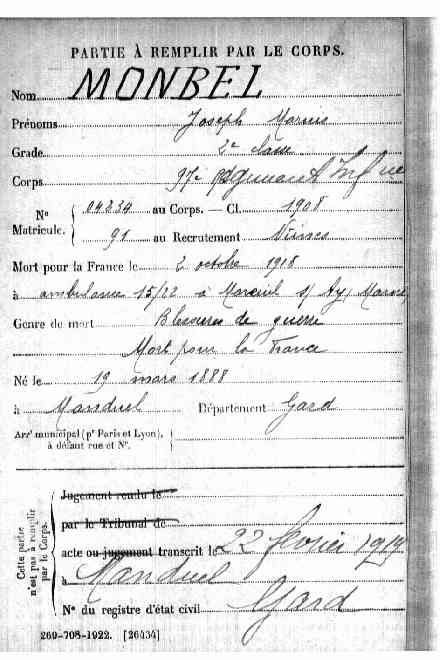 PARTIE À REMPLIR PAR LE CORPS.
Nom MONBEL
Prénoms Joseph Marius
Grade 2e classe
Corps 97e Régiment Inf rie
Nº Matricule. 04234 au Corps. — Cl. 1908
91 au Recrutement Nîmes
Mort pour la France le 2 octobre 1918
à ambulance 15/22 à Mareuil s/ Ay, Marne
Genre de mort Blessures de guerre
Mort pour la France
Né le 19 mars 1888
à Manduel Département Gard
Arrt municipal (pr Paris et Lyon),
à défaut rue et Nº.
Cette partie n'est pas à remplir par le Corps.
Jugement rendu le
par le Tribunal de
acte ou jugement transcrit le 22 février 1919
à Manduel
Nº du registre d'état civil Gard
269-708-1922. [26434]